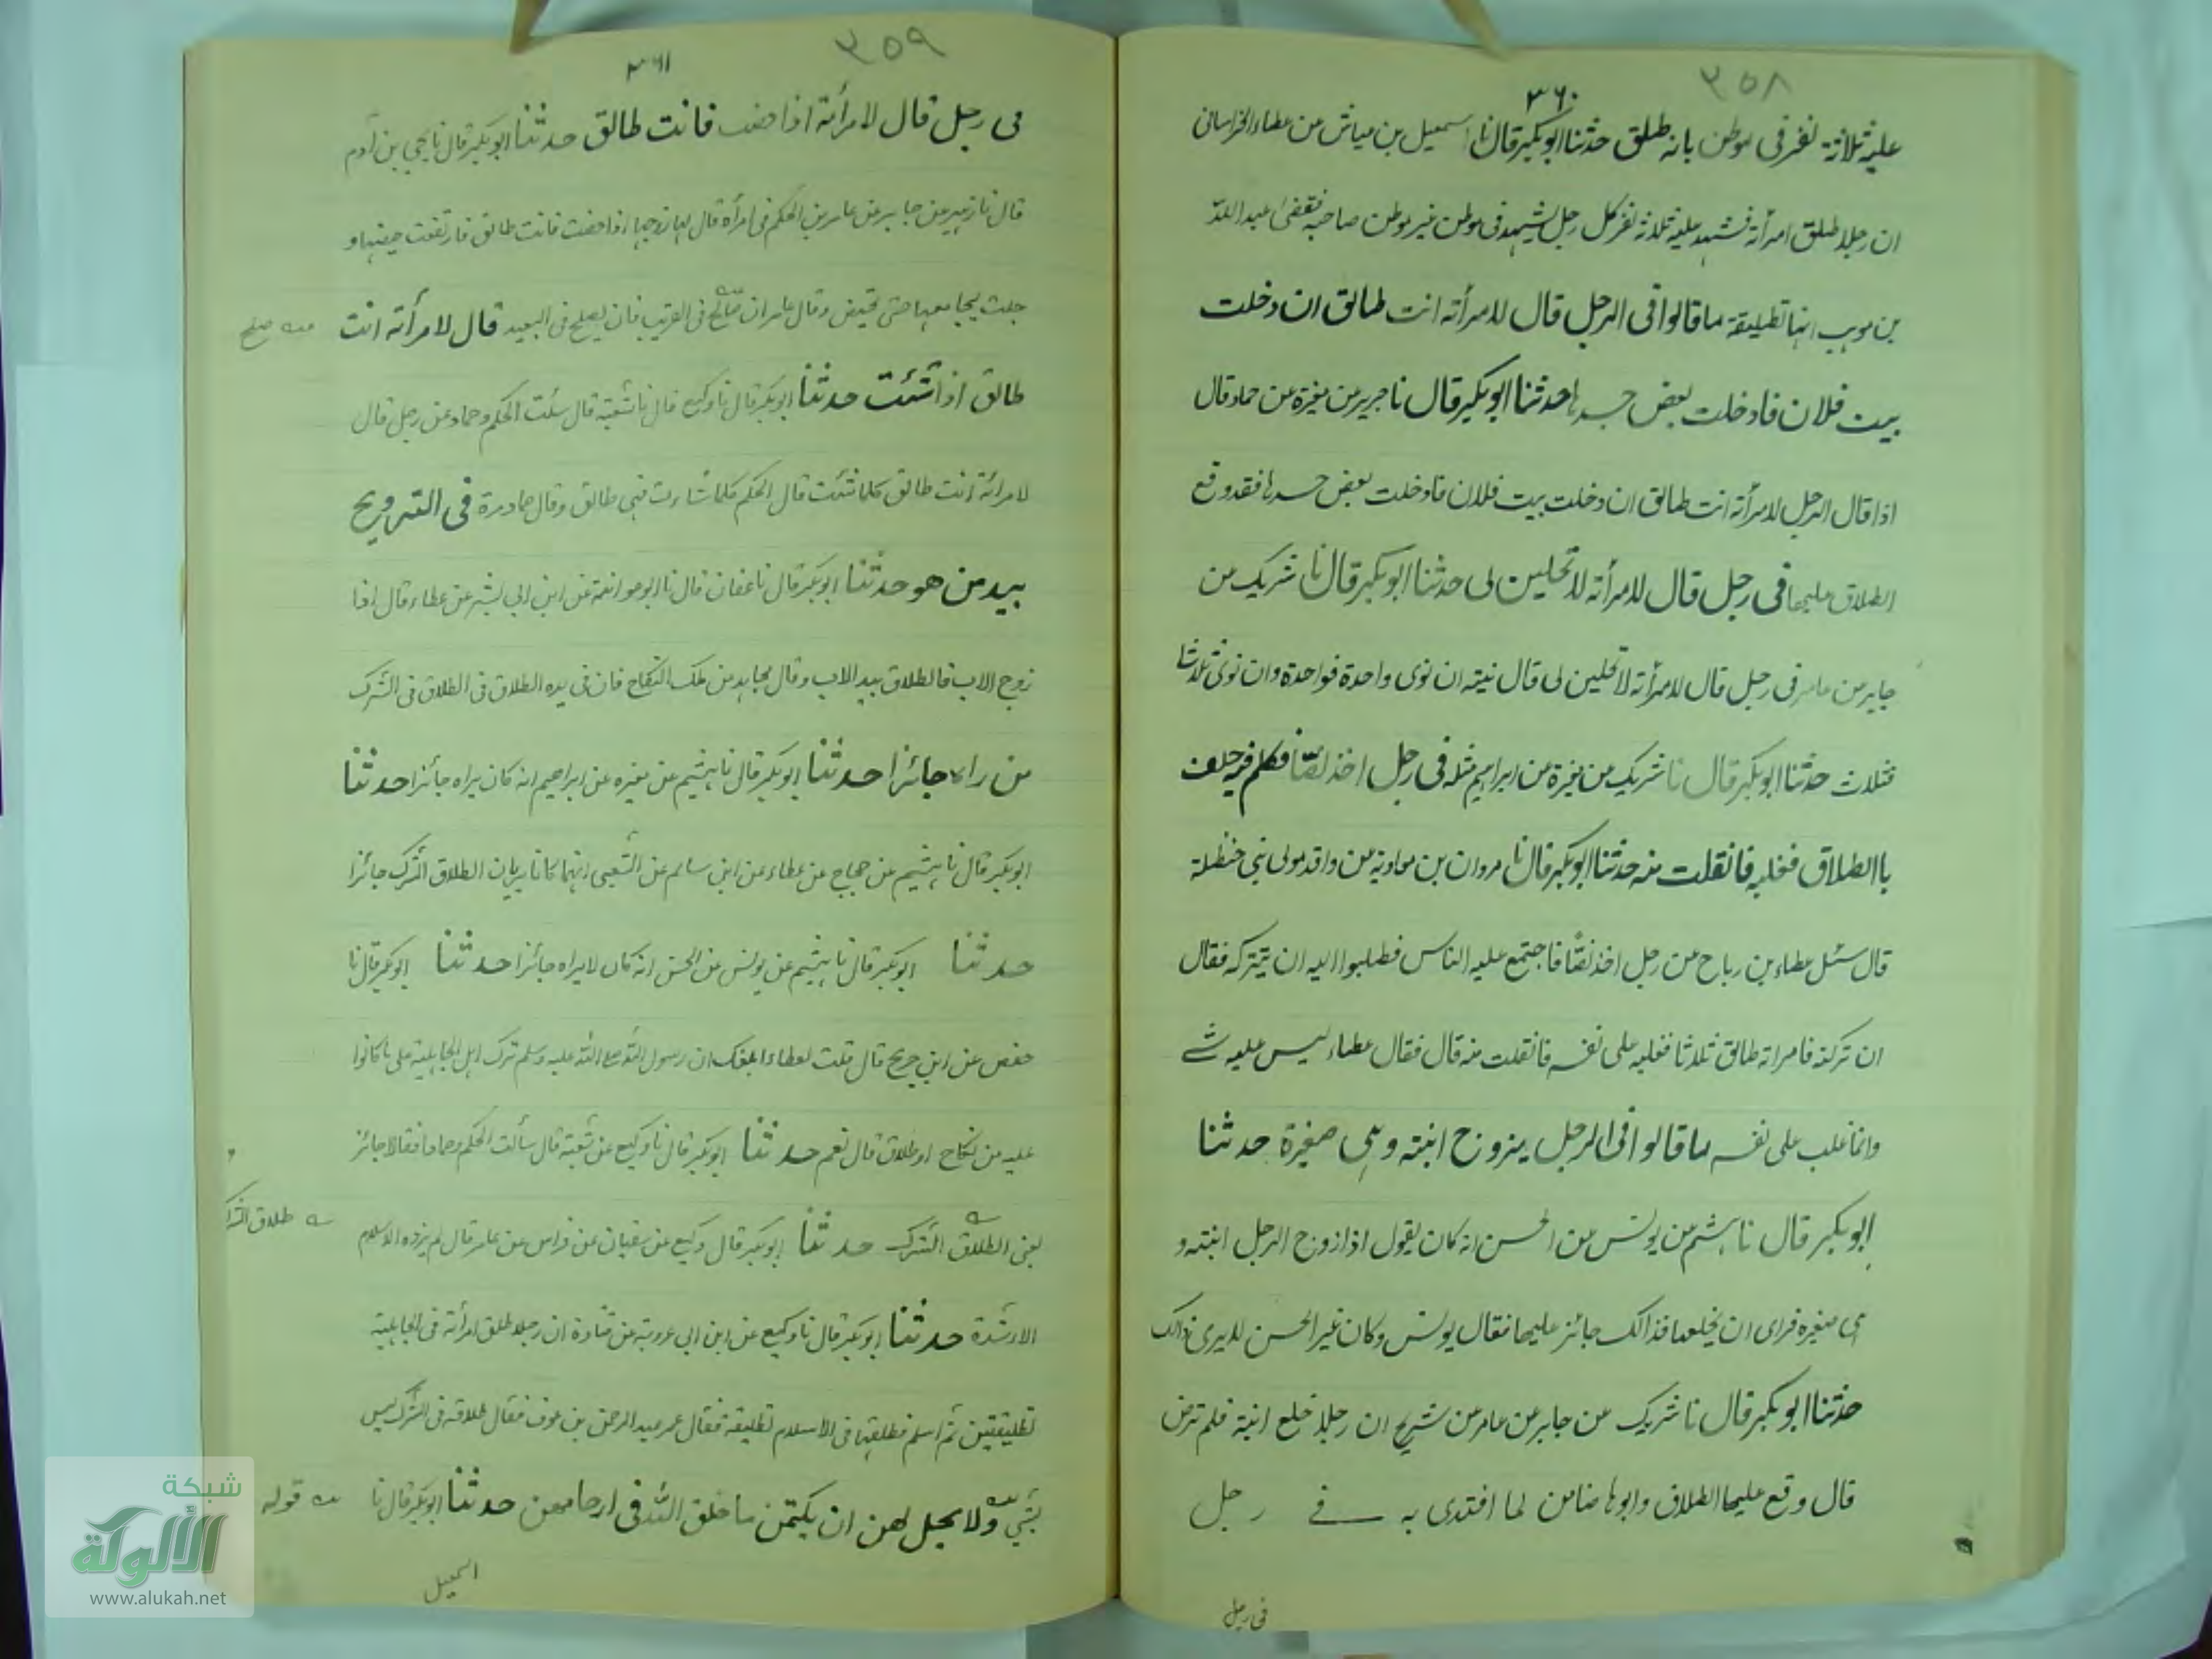 ٣٥٨
٣٦٠
عليه ثلاثة نفر فى موطن بانه طلق حدثنا ابوبكر قال نا اسمعيل بن عياش عن عطاء الخراسانى
ان رجلا طلق امرأته فشهد عليه ثلاثة نفر كل رجل يشهد فى موطن غير موطن صاحبه فقضى عبد الله
بن موهب انها تطليقة ما قالوا فى الرجل قال لامرأته انت طالق ان دخلت
بيت فلان فادخلت بعض جسدها حدثنا ابوبكر قال نا جرير عن مغيرة عن حماد قال
اذا قال الرجل لامرأته انت طالق ان دخلت بيت فلان فادخلت بعض جسدها فقد وقع
الطلاق عليها فى رجل قال لامرأته لا تحلين لى حدثنا ابوبكر قال نا شريك عن
جابر عن عامر فى رجل قال لامرأته لا تحلين لى قال نيته ان نوى واحدة فواحدة وان نوى ثلاثا
فثلاث حدثنا ابوبكر قال نا شريك عن مغيرة عن ابراهيم مثله فى رجل اخذ لصّا فكلم فيه حلف
باالطلاق فغلبه فانفلت منه حدثنا ابوبكر قال نا مروان بن معاوية عن واقد مولى بنى حنظلة
قال سئل عطاء بن رباح عن رجل اخذ لصّا فاجتمع عليه الناس فطلبوا اليه ان يتركه فقال
ان تركته فامراته طالق ثلاثا فغلبه على نفسه فانفلت منه قال فقال عطاء ليس عليه شے
وانما غلب على نفسه ما قالوا فى الرجل يزوج ابنته وهى صغيرة حدثنا
ابوبكر قال نا هشيم عن يونس عن الحسن انه كان يقول اذا زوج الرجل ابنته و
هى صغيره فراى ان يخلعها فذالك جائز عليها فقال يونس وكان غير الحسن لا يرى ذالك
حدثنا ابوبكر قال نا شريك عن جابر عن عامر عن شريح ان رجلا خلع ابنته فلم ترض
قال وقع عليها الطلاق وابوها ضامن لما افتدى به فے رجل
فى رجل
٣٥٩
٣٦١
فى رجل قال لامرأته اذا حضت فانت طالق حدثنا ابوبكر قال نا يحيى بن آدم
قال نا زهير عن جابر عن عامر عن الحكم فى امرأة قال لها زوجها اذا حضت فانت طالق فارتفعت حيضتها و
يجامعها حتى تحيض وقال عامر ان صالح فى القريب فان يصلح فى البعيد قال لامرأته انت
صلح
طالق اذا شئت حدثنا ابوبكر قال نا وكيع قال نا شعبة قال سئلت الحكم وحماد عن رجل قال
لامرأته انت طالق كلما شئت قال الحكم كلما شاءت فهى طالق وقال حماد مرة فى التزويج
بيد من هو حدثنا ابوبكر قال نا عفان قال نا ابو عوانة عن ابى بشر عن عطاء قال اذا
زوج الاب فالطلاق بيد الاب وقال مجاهد من ملك النكاح فان فى يده الطلاق فى الطلاق فى الشرك
من راه جائزا حدثنا ابوبكر قال نا هشيم عن مغيره عن ابراهيم انه كان يراه جائزا حدثنا
ابوبكر قال نا هشيم عن حجاج عن عطاء عن ابن سالم عن الشعبى انهما كانا يريان الطلاق الشرك جائزا
حدثنا ابوبكر قال نا هشيم عن يونس عن الحسن انه كان لا يراه جائزا حدثنا ابوبكر قال نا
حفص عن ابن جريج قال قلت لعطاء ابلغك ان رسول الله صلى الله عليه وسلم ترك اهل الجاهلية على ما كانوا
عليه من نكاح او طلاق قال نعم حدثنا ابوبكر قال نا وكيع عن شعبة قال سألت الحكم وحمادا فقالا جائز
يعنى الطلاق الشرك حدثنا ابوبكر قال وكيع عن سفيان عن فراس عن عامر قال لم يزده الاسلام
طلاق
الا شدة حدثنا ابوبكر قال نا وكيع عن ابن ابى عروبة عن قتادة ان رجلا طلق امرأته فى الجاهلية
تطليقتين ثم اسلم فطلقها فى الاسلام تطليقة فقال عمر عبد الرحمن بن عوف فقال طلاقه فى الشرك ليس
بشى ولا يحل لهن ان يكتمن ما خلق الله فى ارحامهن حدثنا ابوبكر قال نا
قوله
اسمعيل
شبكة
الألوكة
www.alukah.net